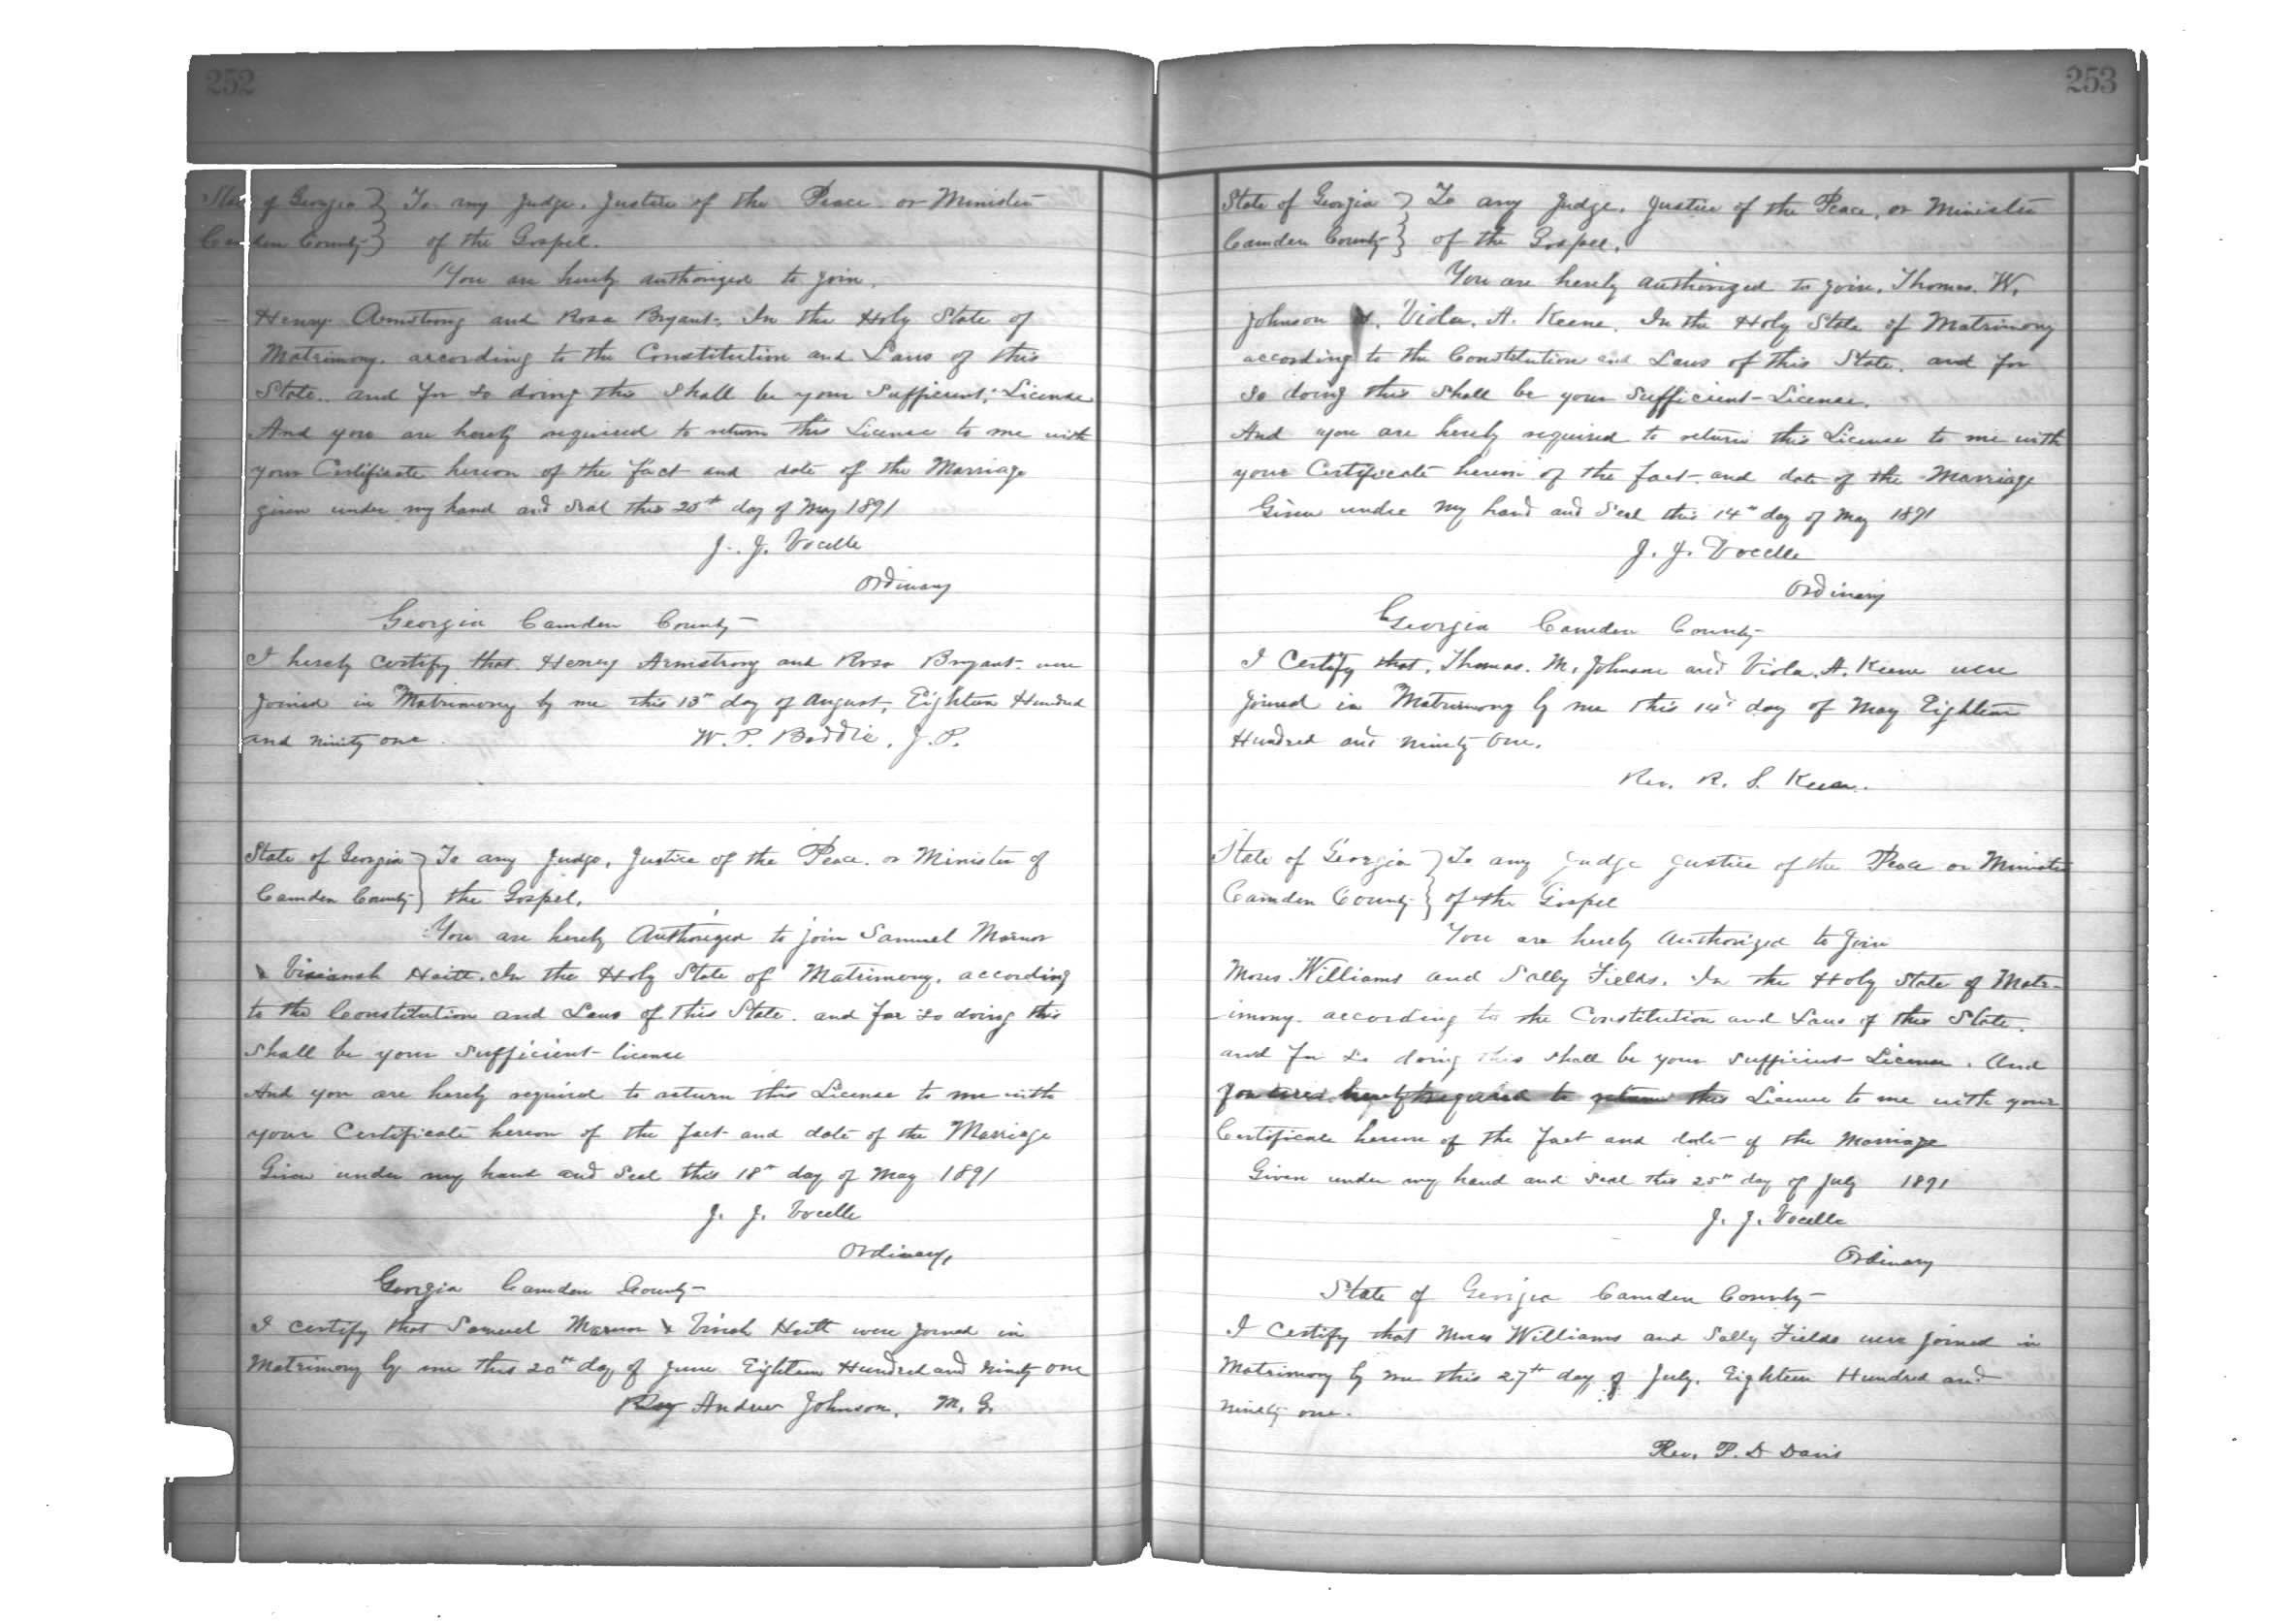 252
State of Georgia } To any Judge, Justice of the Peace or Minister
Camden County } of the Gospel.
You are hereby authorized to join,
Henry Armstrong and Rosa Bryant, In the Holy State of
Matrimony, according to the Constitution and Laws of this
State, and for so doing this shall be your Sufficient License
And you are hereby required to return this License to me with
your Certificate hereon of the fact and date of the Marriage
given under my hand and Seal this 25th day of May 1891
J. J. Vocelle
Ordinary
Georgia Camden County
I hereby certify that Henry Armstrong and Rosa Bryant were
joined in Matrimony by me this 13th day of August, Eighteen Hundred
and ninety one. W. P. Boddie, J.P.
State of Georgia } To any Judge, Justice of the Peace or Minister of
Camden County } the Gospel.
You are hereby Authorized to join Samuel
& Haitt. In the Holy State of Matrimony, according
to the Constitution and Laws of this State, and for so doing this
shall be your sufficient license
And you are hereby required to return this License to me with
your Certificate hereon of the fact and date of the Marriage
Given under my hand and Seal this 18th day of May 1891
J. J. Vocelle
Ordinary,
Georgia Camden County
I certify that Samuel & Haitt were joined in
Matrimony by me this 20th day of June Eighteen Hundred and ninety one
Andrew Johnson, M. G.
253
State of Georgia } To any Judge, Justice of the Peace, or Minister
Camden County } of the Gospel,
You are hereby authorized to join, Thomas. W.
Johnson Viola. A. Keene, In the Holy State of Matrimony
according to the Constitution and Laws of this State, and for
so doing this shall be your sufficient License.
And you are hereby required to return this License to me with
your Certificate hereon of the fact and date of the Marriage
Given under my hand and Seal this 14th day of May 1891
J. J. Vocelle
Ordinary
Georgia Camden County
I Certify that, Thomas. M. Johnson and Viola. A. Keene were
joined in Matrimony by me this 14th day of May Eighteen
Hundred and ninety One.
Rev. R. S. Keen.
State of Georgia } To any Judge Justice of the Peace or Minister
Camden County } of the Gospel
You are hereby Authorized to Join
Moses Williams and Sally Fields, In the Holy State of Matr-
imony, according to the Constitution and Laws of this State,
and for so doing this shall be your sufficient License. And
you are hereby required to return this License to me with your
Certificate hereon of the Fact and date of the Marriage
Given under my hand and Seal this 25th day of July 1891
J. J. Vocelle
Ordinary
State of Georgia Camden County
I Certify that Moses Williams and Sally Fields were joined in
Matrimony by me this 27th day of July, Eighteen Hundred and
ninety one.
Rev. P. D Davis